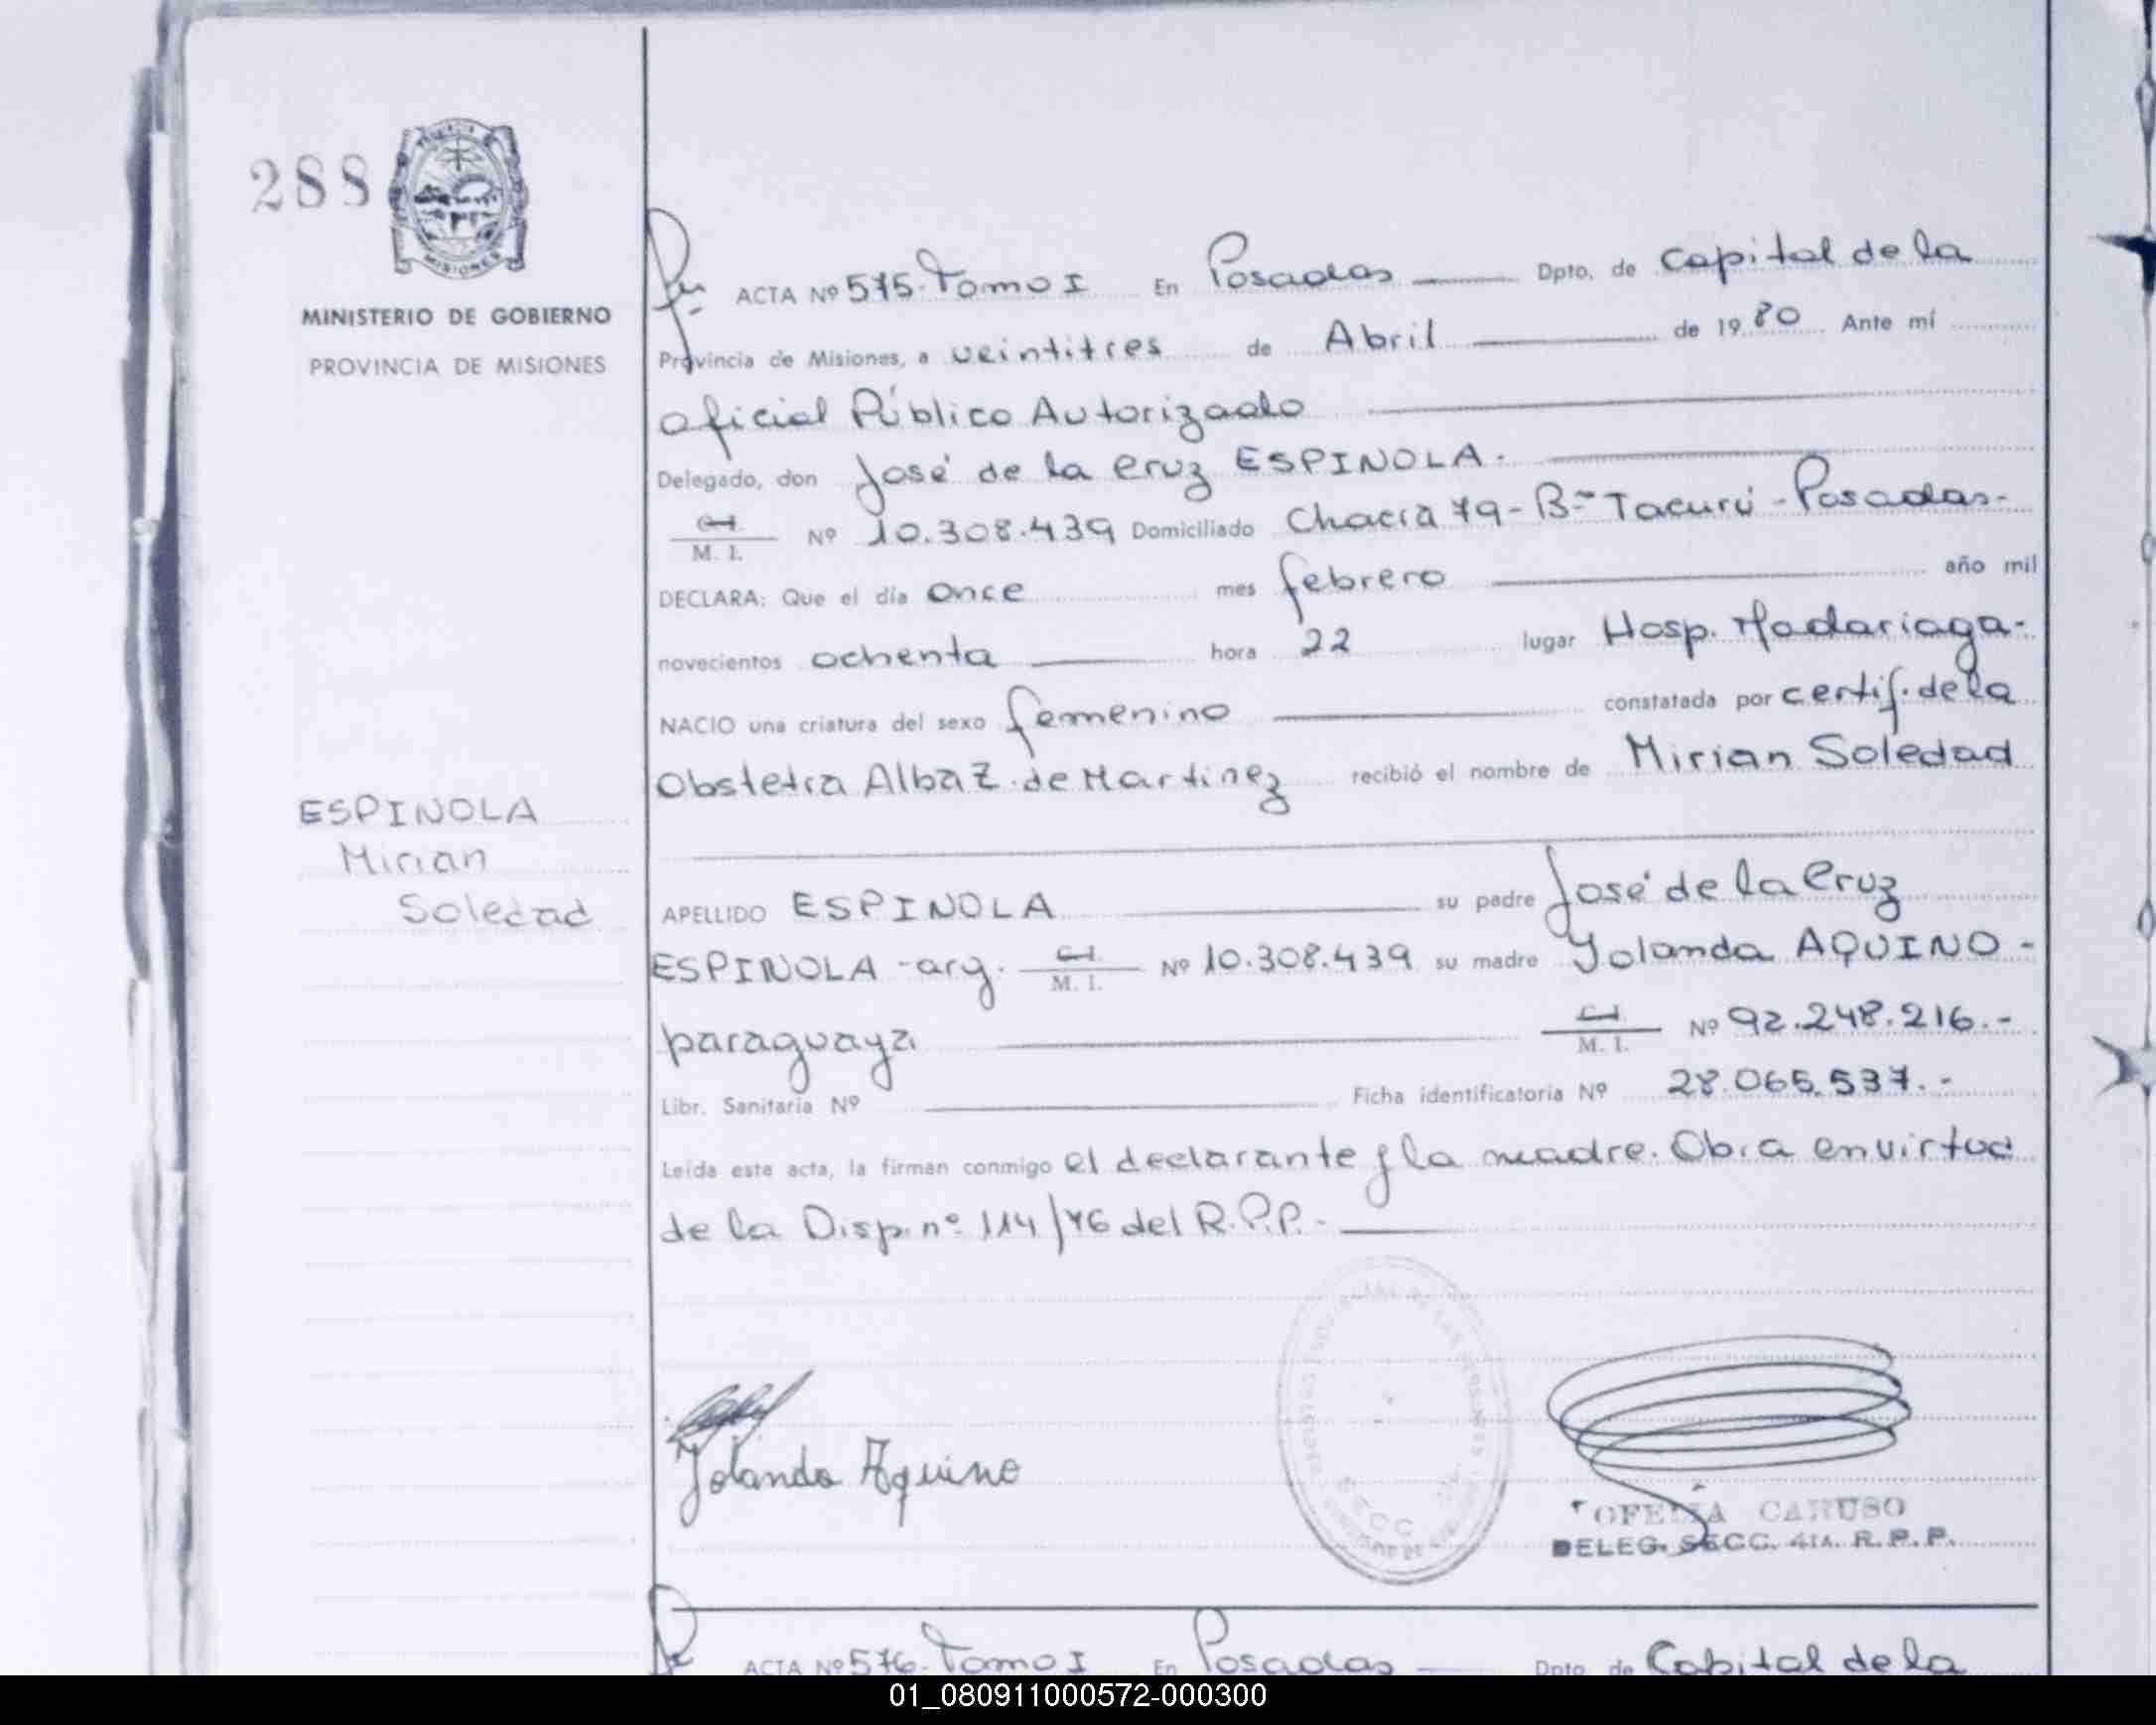 288
MISIONES
MINISTERIO DE GOBIERNO
PROVINCIA DE MISIONES
ESPINOLA
Mirian
Soledad
ACTA Nº 575. Tomo I En Posadas Dpto. de Capital de la
Provincia de Misiones, a veintitres de Abril de 1980 Ante mí
Oficial Público Autorizado
Delegado, don José de la Cruz ESPINOLA.
C.I. M. I. Nº 10.308.439 Domiciliado Chacra 79 - Bº Tacurú - Posadas-
DECLARA: Que el día once mes febrero año mil
novecientos ochenta hora 22 lugar Hosp. Madariaga.
NACIO una criatura del sexo femenino constatada por certif. de la
Obstetra Alba Z. de Martinez recibió el nombre de Mirian Soledad
APELLIDO ESPINOLA su padre José de la Cruz
ESPINOLA - arg. C.I. M. I. Nº 10.308.439 su madre Yolanda AQUINO -
paraguaya C.I. M. I. Nº 92.248.216.-
Libr. Sanitaria Nº Ficha identificatoria Nº 28.065.537.-
Leída esta acta, la firman conmigo el declarante y la madre. Obra en virtud
de la Disp. nº 114/76 del R.P.P.-
Yolanda Aquino
OFELIA CARUSO
DELEG. SECC. 4ta. R. P. P.
ACTA Nº 576. Tomo I En Posadas Dpto. de Capital de la
01_080911000572-000300